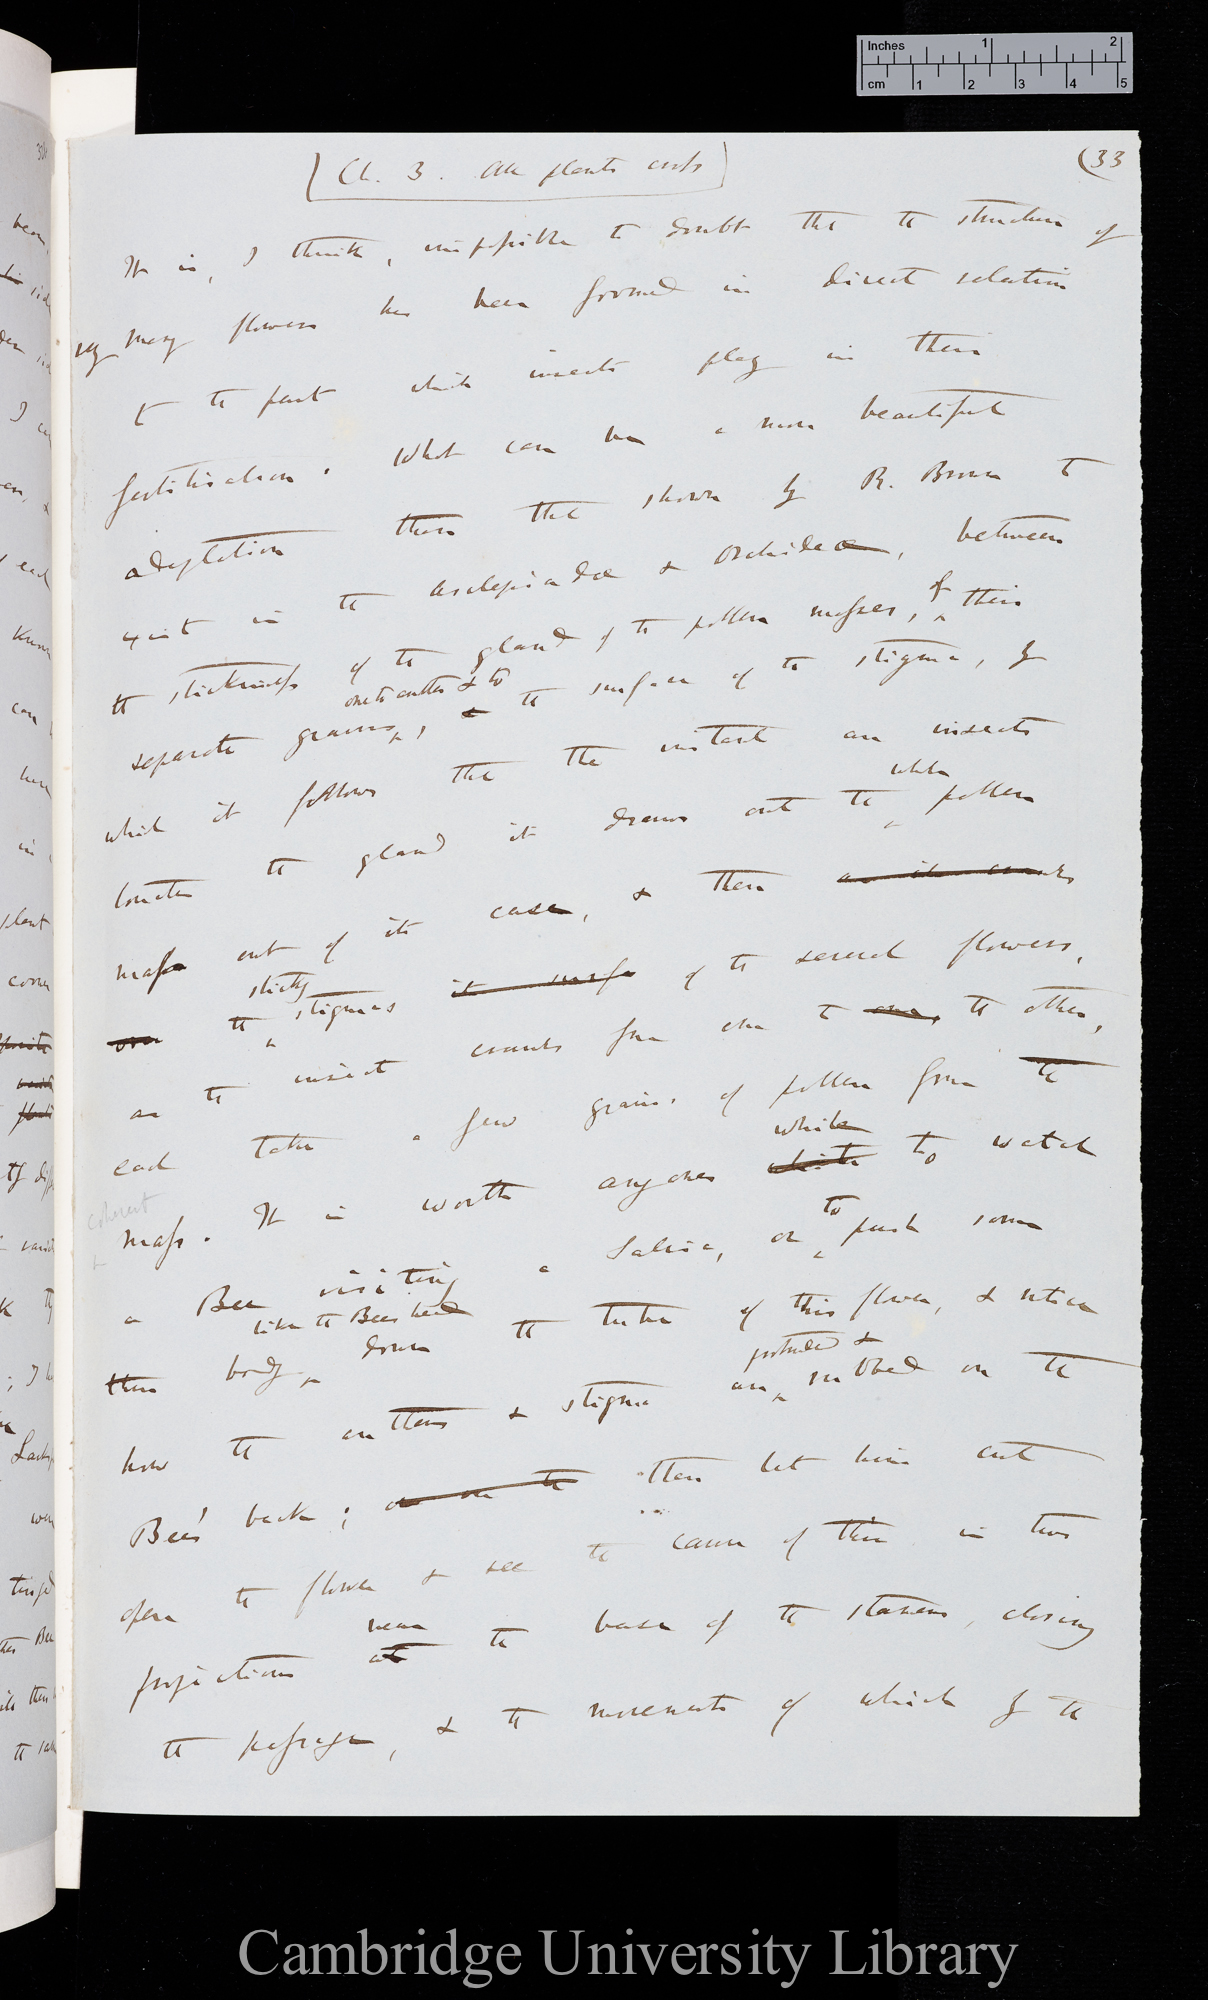 Inches 1 2
cm 1 2 3 4 5
Ch. 3. All plants cross
(33
It is, I think, impossible to doubt that the structure of
very many flowers has been formed in direct relation
to the part which insects play in their
fertilisation. What can be a more beautiful
adaptation than that shown by R. Brown to
exist in the Asclepiadæ & Orchideæ, between
the stickiness of the gland of the pollen masses, of their
separate grains one to another & to, & the surface of the stigma, by
which it follows that the instant an insects
touches the gland it draws out the whole pollen
mass out of its case, & then as it crawls
over the sticky stigmas its surface of the several flowers,
as the insect crawls from one to one, the other,
each takes a few grains of pollen from the
coherent
&
mass. It is worth anyones while while to watch
a Bee visiting a Salvia, or to push some
then body like the Bees head down the tube of this flower, & notice
how the anthers & stigma are protruded & rubbed on the
Bee's back; or on the then let him cut
open the flower & see the cause of this in two
projections at near the base of the stamens, closing
the passage, & the movements of which by the
Cambridge University Library